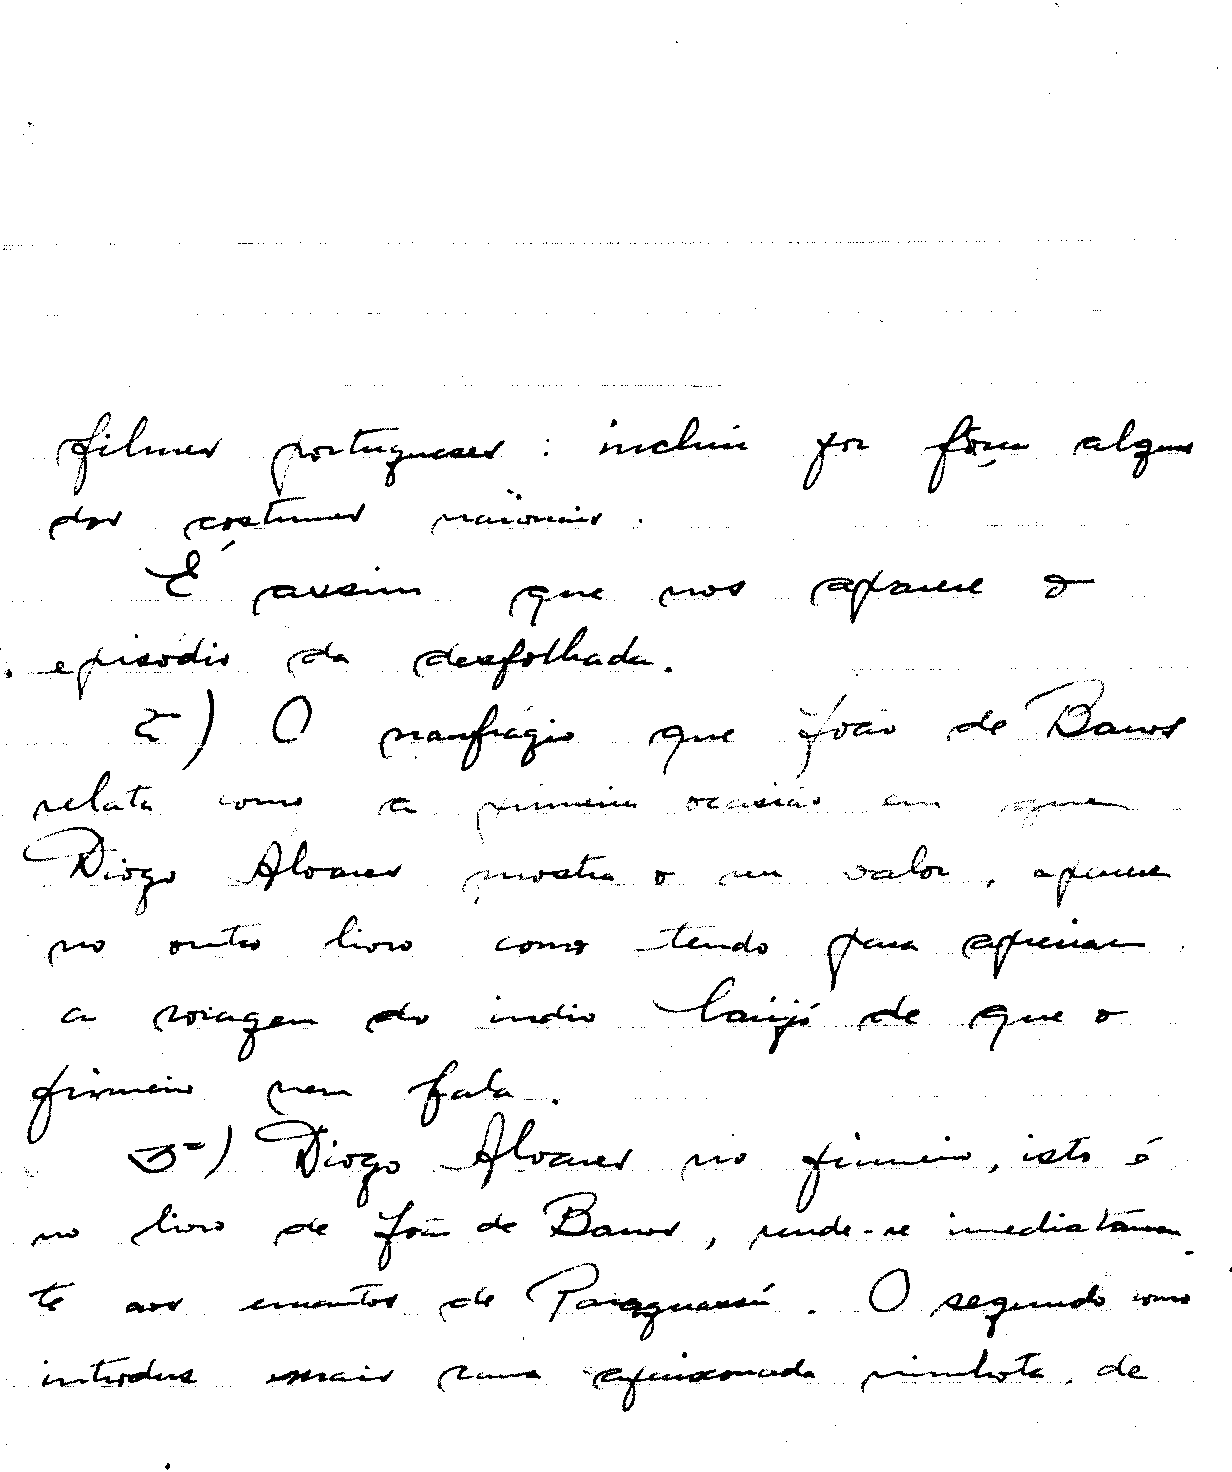 filmes portugueses: incluir por força alguns
dos costumes nacionais.
É assim que nos aparece o
episódio da desfolhada.
2º) O naufrágio que João de Barros
relata como a primeira ocasião em que
Diogo Alvares mostra o seu valor, aparece
no outro livro como tendo para apreciar
a viagem do indio de que o
primeiro nem fala.
3º) Diogo Alvares no primeiro, isto é
no livro de João de Barros, rende-se imediatamen-
te aos encantos de Paraguassú. O segundo como
introduz mais uma apaixonada minhota, de